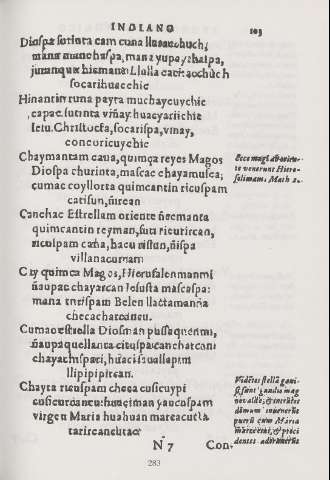 INDIANO 103
Diospa sutinta cam cuna llusauchuch,
mana mancharpa, mana yupaychaspa,
Llulla
socarihuacchic
Hinantin runa payta muchaycuychic
,capac sutinta viñay huacyariichic
Iesu Christocta, socarispa, vinay,
concoricuychic
Chaymantam caua, quimça reyes Magos
Diospa churinta, mascac chayamusca;
cumac coyllorta quimcantin ricuspam
catisun, ñirean
Canchac Estrellam oriente ñecmanta
quimcantin reyman, suti ricurircan,
ricuspam caña, hacu ristun, ñispa
villanacurcam
Cay quimça Magos, Hierusalenmanmi
ñaupac chayarcan Iesusta mascaspa:
mana taripam Belen llactamanña
checachareancu.
Cumac estrella Diosman pussaquenmi,
ñaupaquellanta cituspa canchatcani
chayachispari, huaci ssuallapim
llipipipircan.
Chayta ricuspam checa cusicuypi
cusicurcancu: huaciman yaucuspam
virgen Maria huahuan marcacutla
tarircancutac
N 7 Con-
Ecce magi ab oriente
venerunt Hiero-
solimam. Math 2.
Videtes stellã gaui-
si sunt gaudio mag
no valde; & intrãtes
domum inuenerũt
puerũ cum Maria
matre eius, & proci
dentes adorauerũt
283